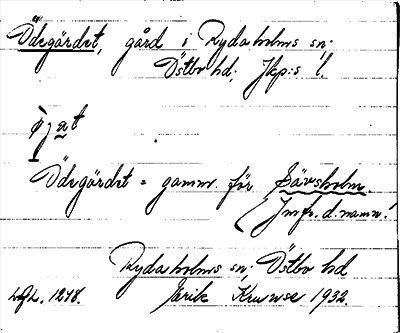 Ödegärdet, gård i Rydaholms sn;
Östbo hd; Jkp:s l.
Ödegärdet = gamm. för Sävsholm.
(Jmfr. d. namn!
Rydaholms sn; Östbo hd
1278. Erik Kruuse 1932.